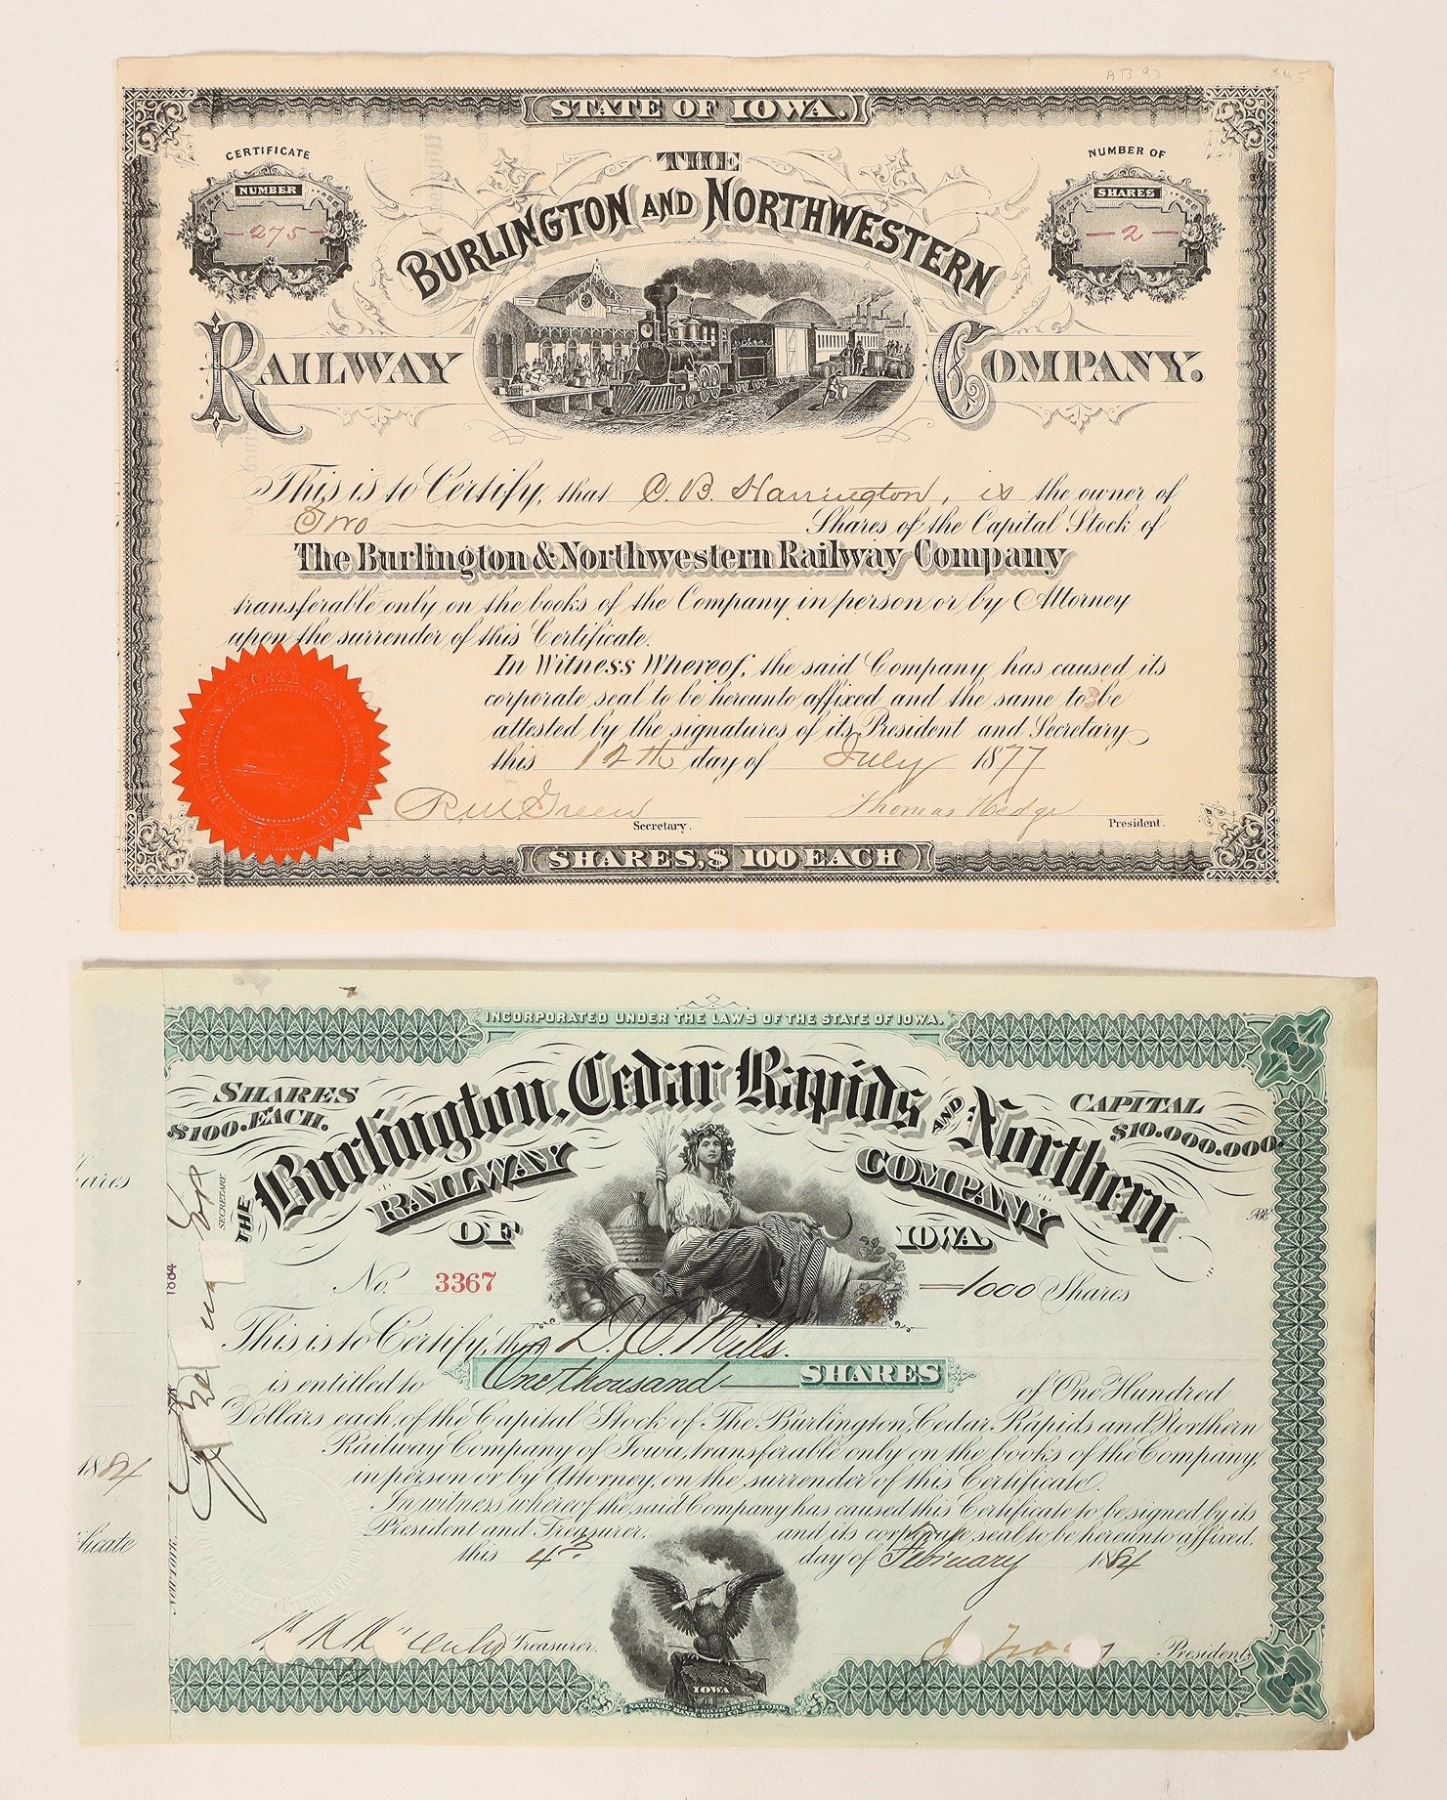 AB 93 $45
STATE OF IOWA.
CERTIFICATE
NUMBER
275
NUMBER OF
SHARES
2
THE
BURLINGTON AND NORTHWESTERN
RAILWAY COMPANY.
This is to Certify, that C. B. Harrington, is the owner of
Two Shares of the Capital Stock of
The Burlington & Northwestern Railway Company
transferable only on the books of the Company in person or by Attorney
upon the surrender of this Certificate.
In Witness Whereof, the said Company has caused its
corporate seal to be hereunto affixed and the same to be
attested by the signatures of its President and Secretary
this 12th day of July 1877
Green Secretary.
Thomas Hedge President.
SHARES, $ 100 EACH
INCORPORATED UNDER THE LAWS OF THE STATE OF IOWA.
SHARES
$100. EACH.
CAPITAL
$10.000.000
THE Burlington, Cedar Rapids AND Northern
RAILWAY COMPANY
OF IOWA.
No. 3367
1000 Shares
This is to Certify, that D. O. Mills.
is entitled to One thousand SHARES of One Hundred
Dollars each, of the Capital Stock of The Burlington, Cedar Rapids and Northern
Railway Company of Iowa, transferable only on the books of the Company,
in person or by Attorney, on the surrender of this Certificate.
In witness whereof the said Company has caused this Certificate to be signed by its
President and Treasurer, and its corporate seal to be hereunto affixed,
this 4th day of February 1884
Treasurer.
President.
IOWA
NATIONAL BANK NOTE CO. NEW YORK
SECRETARY
1884
NEW YORK.
hares
1884
ificate